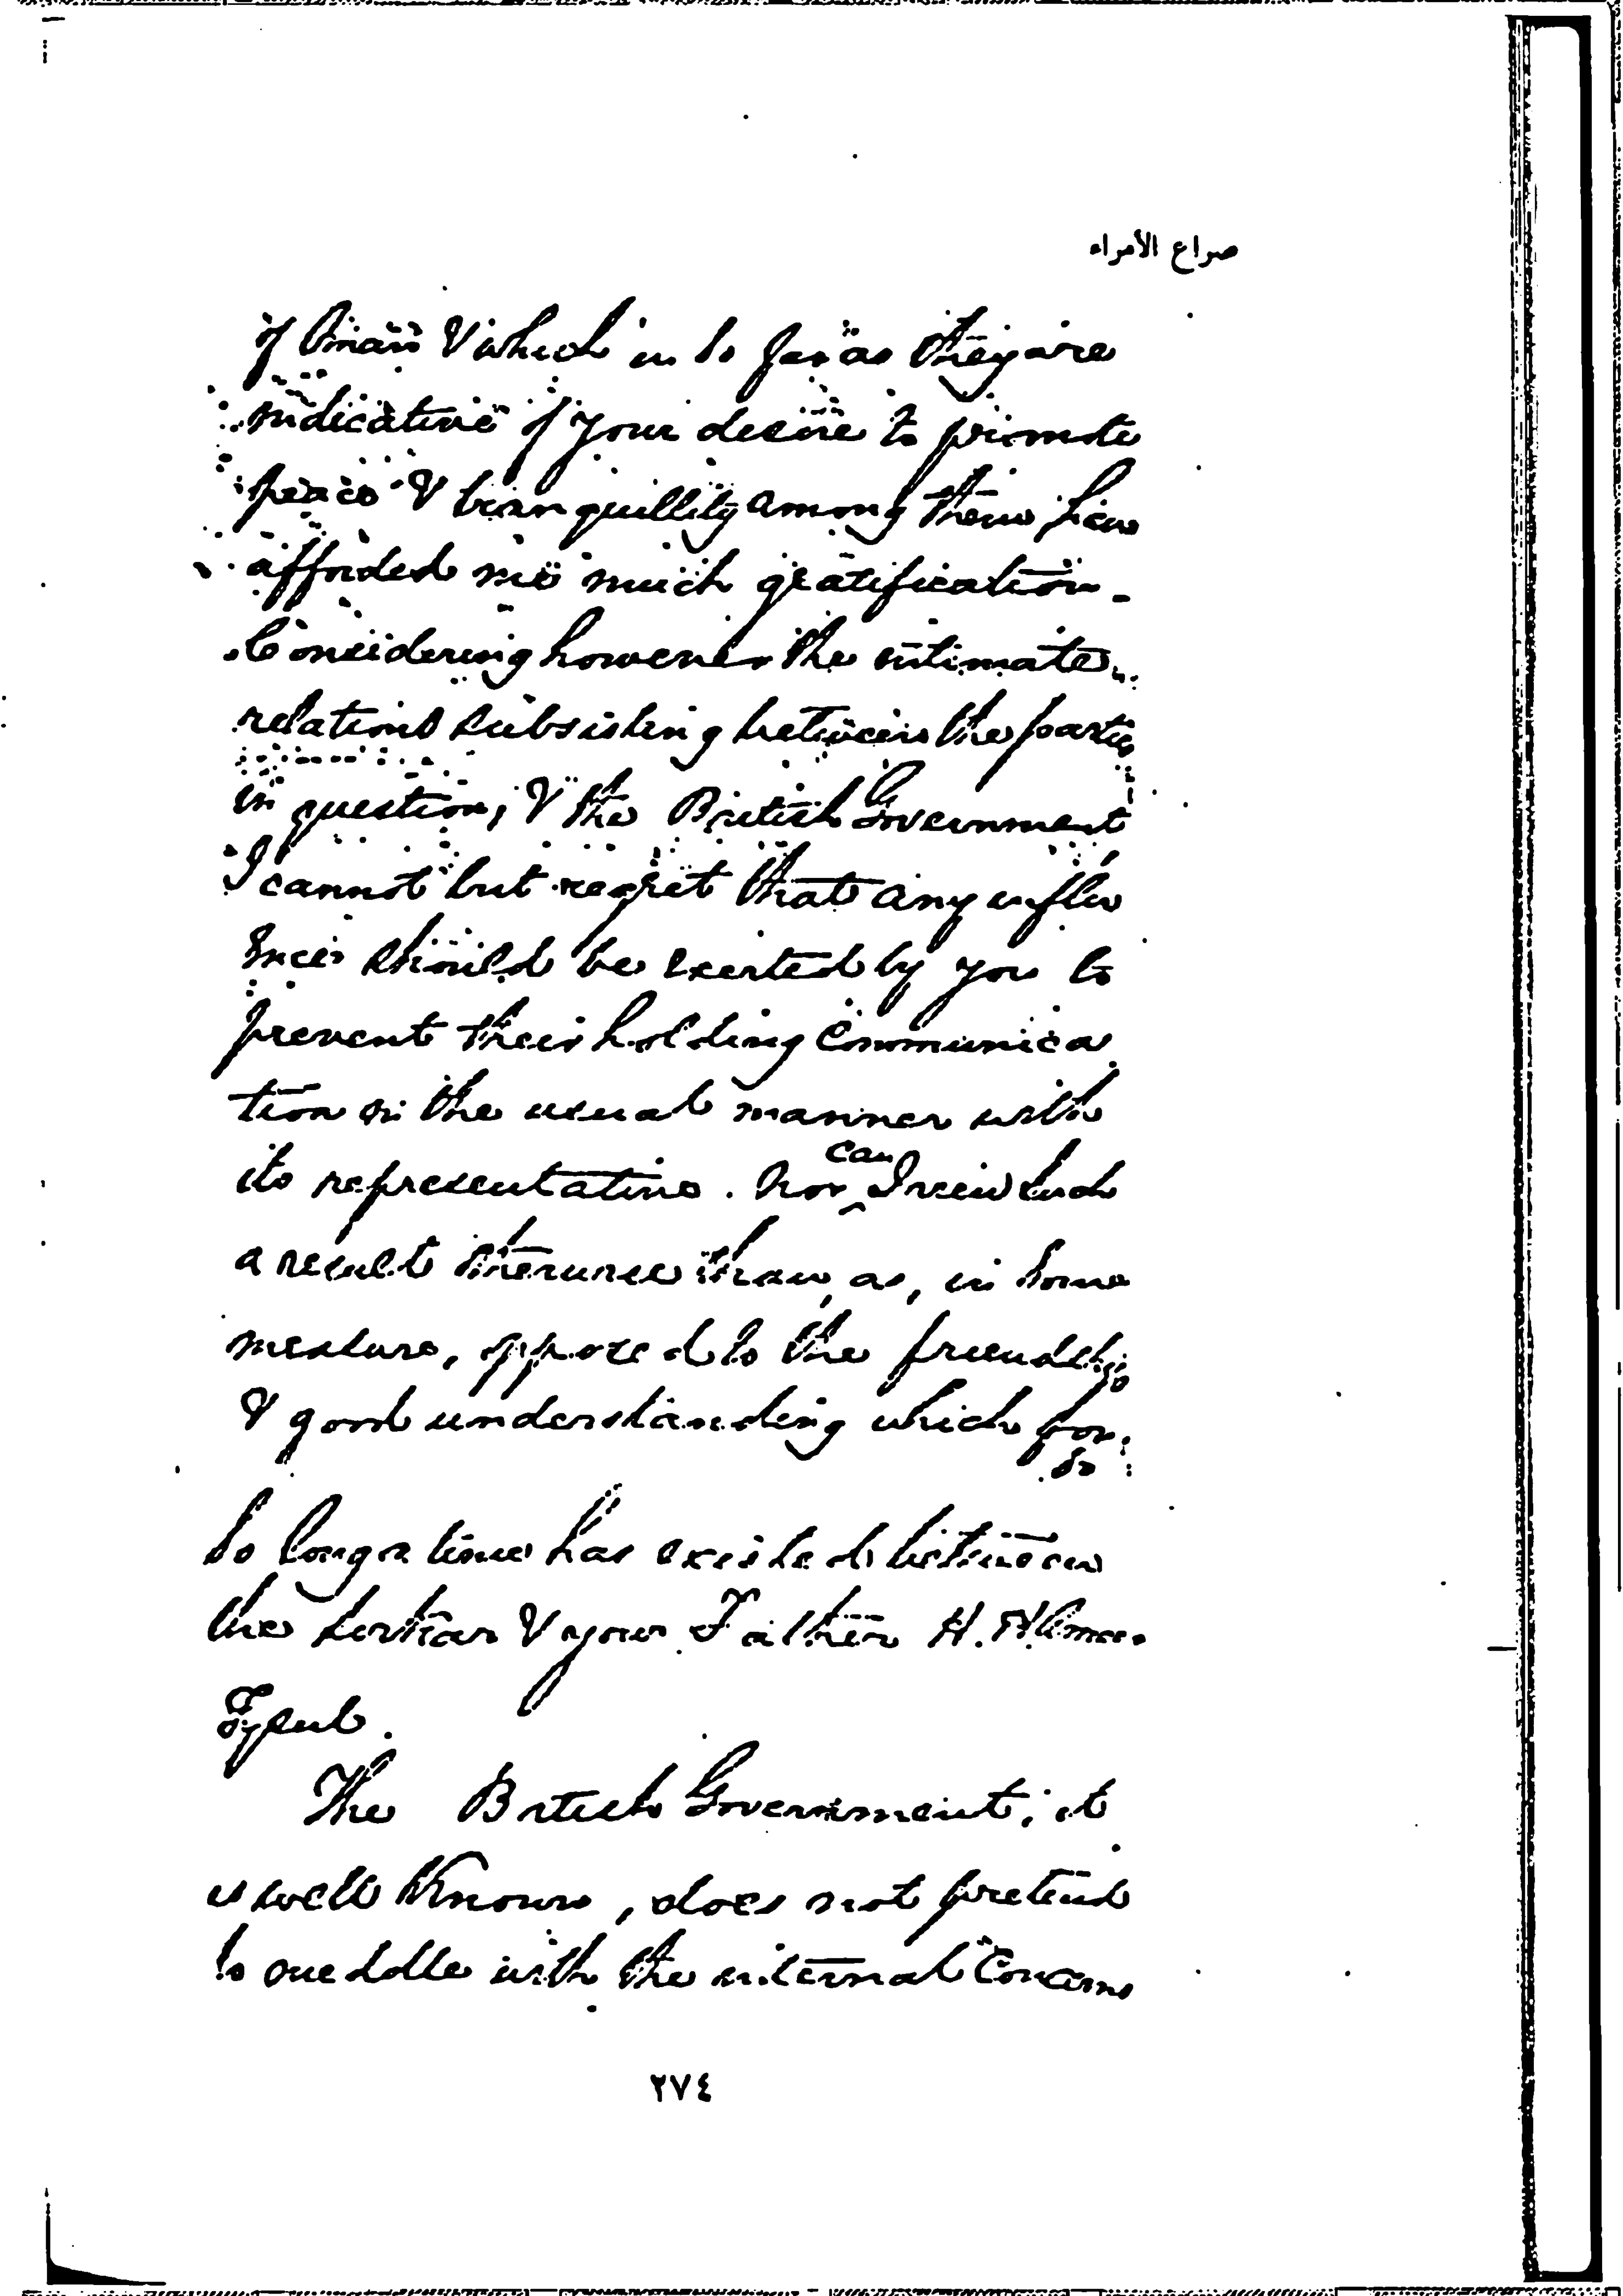 صراع الأمراء
of Oman & which in so far as they are
indicative of your desire to promote
peace & tranquillity among them have
afforded me much gratification -
Considering however the intimate
relations subsisting between the parties
in question, & the British Government
I cannot but regret that any influ
ence should be exerted by you to
prevent their holding Communica
tion in the usual manner with
its representative. Nor can I view such
a result otherwise than, as, in some
measure, opposed to the
& good understanding which for
so
so long a time has existed between
the Sarkar & your Father H. H.
Syud.
The British Government, it
is well known, does not pretend
to meddle with the internal Concerns
٢٧٤